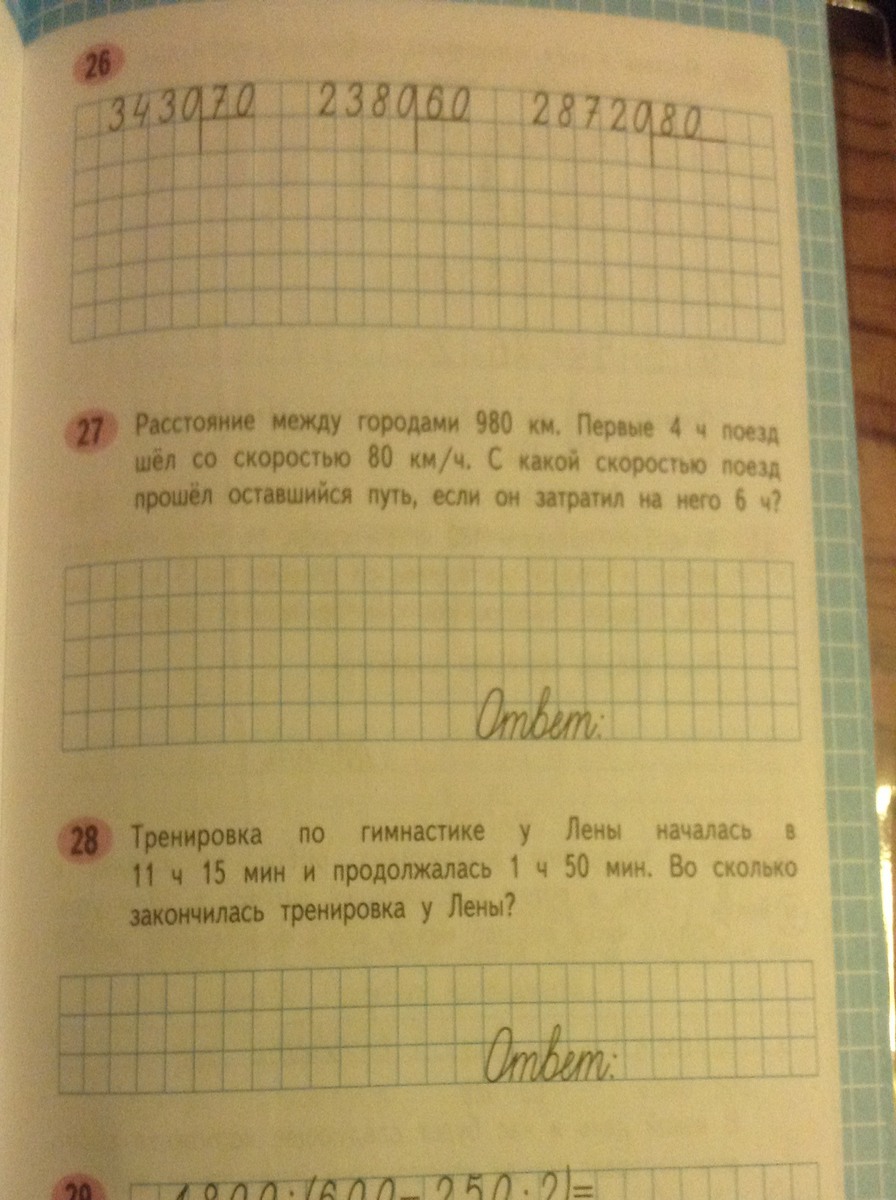 26
3430 70 2380 60 28720 80
27 Расстояние между городами 980 км. Первые 4 ч поезд
шёл со скоростью 80 км/ч. С какой скоростью поезд
прошёл оставшийся путь, если он затратил на него 6 ч?
Ответ:
28 Тренировка по гимнастике у Лены началась в
11 ч 15 мин и продолжалась 1 ч 50 мин. Во сколько
закончилась тренировка у Лены?
Ответ:
29 1800:(600-250·2)=